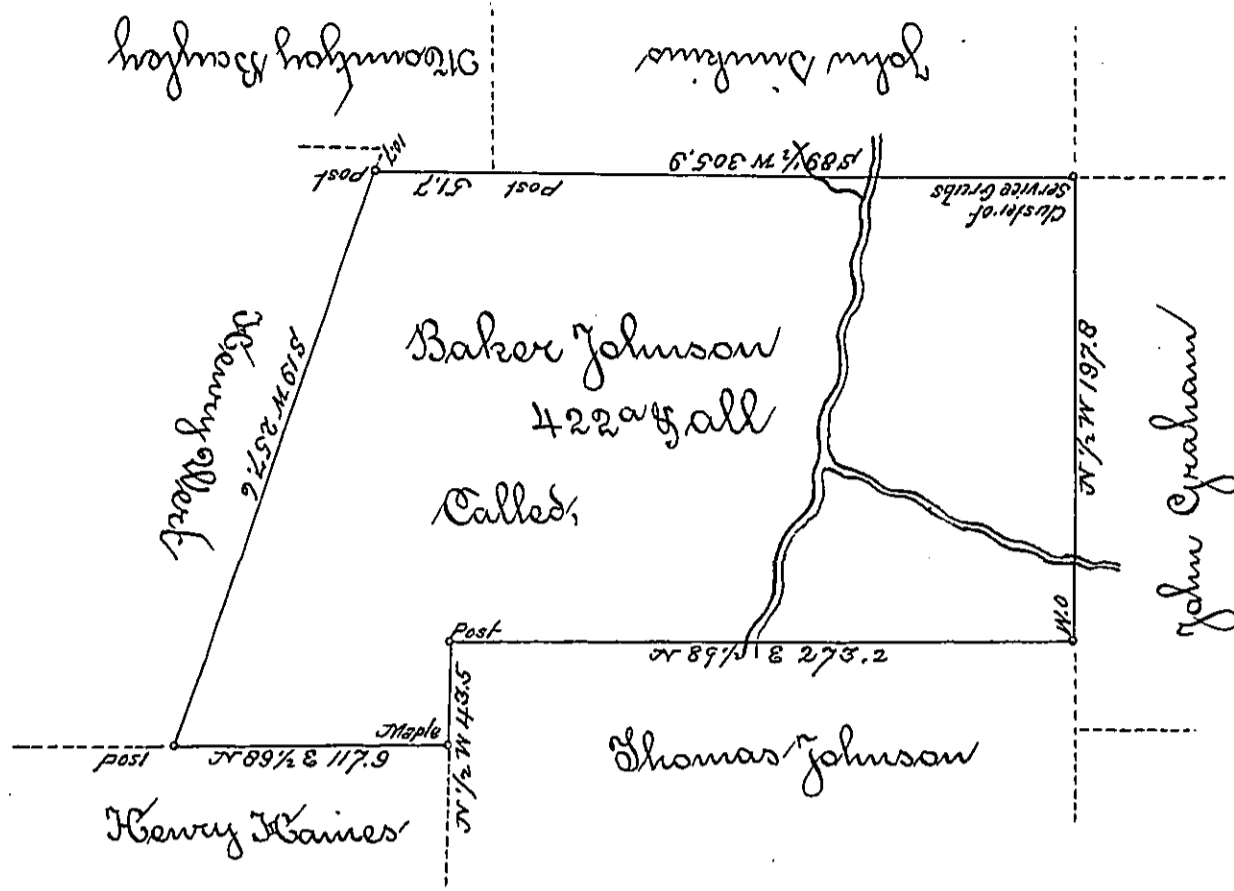 Mountjoy Bayley
John Simkins
10.7
Post
51.7
Post
S 89 1/2 W 305.9
Cluster of
Service Grubs
Henry Werf
S 19 W 257.6
Baker Johnson
422 a & all
Called,
N 1/2 W 197.8
John Graham
W.O
Post
N 89 1/2 E 273.2
N 1/2 W 43.5
Maple
Post
N 89 1/2 E 117.9
Thomas Johnson
Henry Haines